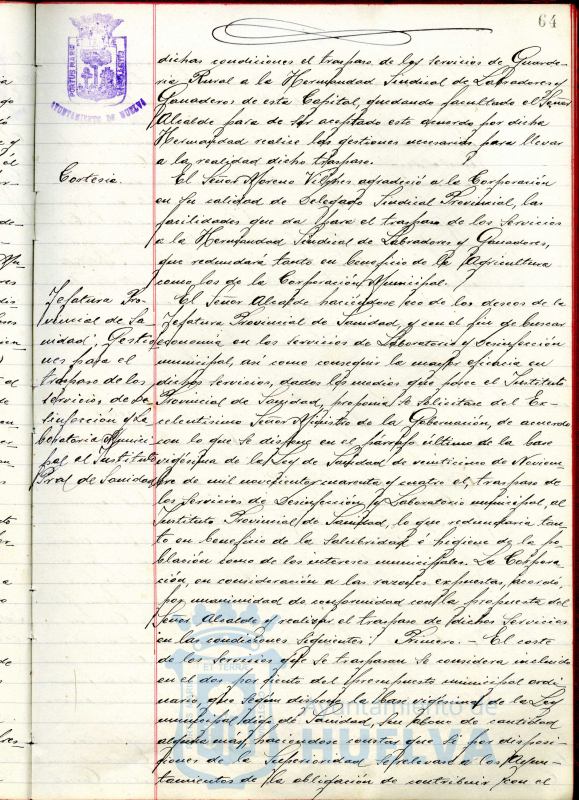 64
PORTUS MARIS ET TERRÆ CUSTODIA
AYUNTAMIENTO DE HUELVA
dichas condiciones el traspaso de los servicios de Guarde-
ria Rural a la Hermandad Sindical de Labradores y
Ganaderos de esta Capital, quedando facultado el Señor
Alcalde para de ser aceptado este acuerdo por dicha
Hermandad realice las gestiones necesarias para llevar
a la realidad dicho traspaso.
Cortesia.
El Señor Moreno Vilches agradeció a la Corporación
en su calidad de Delegado Sindical Provincial, las
facilidades que da para el traspaso de los Servicios
a la Hermandad Sindical de Labradores y Ganaderos,
que redundará tanto en beneficio de la Agricultura
como los de la Corporación Municipal.
Jefatura Pro-
vincial de Sa-
nidad; Gestio-
nes para el
traspaso de los
Servicios de De-
sinfección y La-
boratorio Munici-
pal al Instituto
Pral de Sanidad.
El Señor Alcalde haciéndose eco de los deseos de la
Jefatura Provincial de Sanidad y con el fin de buscar
economia en los servicios de Laboratorio y Desinfección
municipal, así como conseguir la mayor eficacia en
dichos servicios, dados los medios que posee el Instituto
Provincial de Sanidad, proponia se solicitase del Ex-
celentísimo Señor Ministro de la Gobernación, de acuerdo
con lo que se dispone en el párrafo último de la base
vigésima de la Ley de Sanidad de veinticinco de Noviem-
bre de mil novecientos cuarenta y cuatro el traspaso de
los Servicios de Desinfección y Laboratorio municipal, al
Instituto Provincial de Sanidad, lo que redundaria tan-
to en beneficio de la Salubridad é higiene de la po-
blación como de los intereses municipales. La Corpora-
ción, en consideración a las razones expuestas, acordó,
por unanimidad de conformidad con la propuesta del
Señor Alcalde y realizar el traspaso de dichos Servicios
en las condiciones siguientes: Primero.- El coste
de los Servicios que se traspasan se considera incluido
en el dos por ciento del presupuesto municipal ordi-
nario que según dispone la base vigésima de la Ley
municipal digo de Sanidad, sin abono de cantidad
alguna mas, haciéndose constar que si por disposi-
ciones de la Superioridad se relevara a los Ayun-
tamientos de la obligación de contribuir con el
Ayuntamiento de
HUELVA